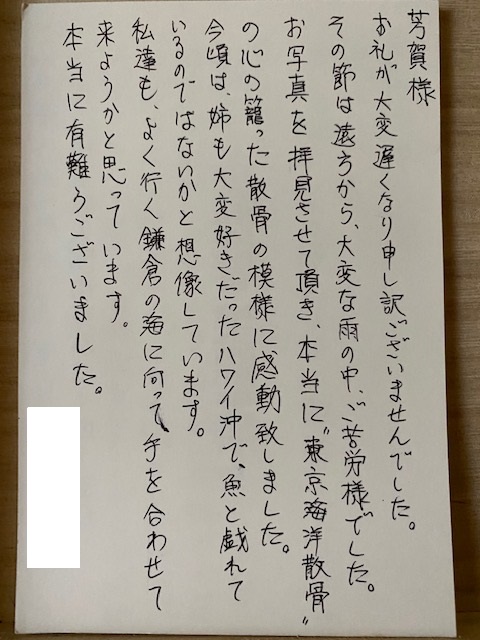 芳賀様
お礼が大変遅くなり申し訳ございませんでした。
その節は遠方から、大変な雨の中、ご苦労様でした。
お写真を拝見させて頂き、本当に〝東京海洋散骨〟
の心の籠った散骨の模様に感動致しました。
今頃は、姉も大変好きだったハワイ沖で、魚と戯れて
いるのではないかと想像しています。
私達も、よく行く鎌倉の海に向って手を合わせて
来ようかと思っています。
本当に有難うございました。